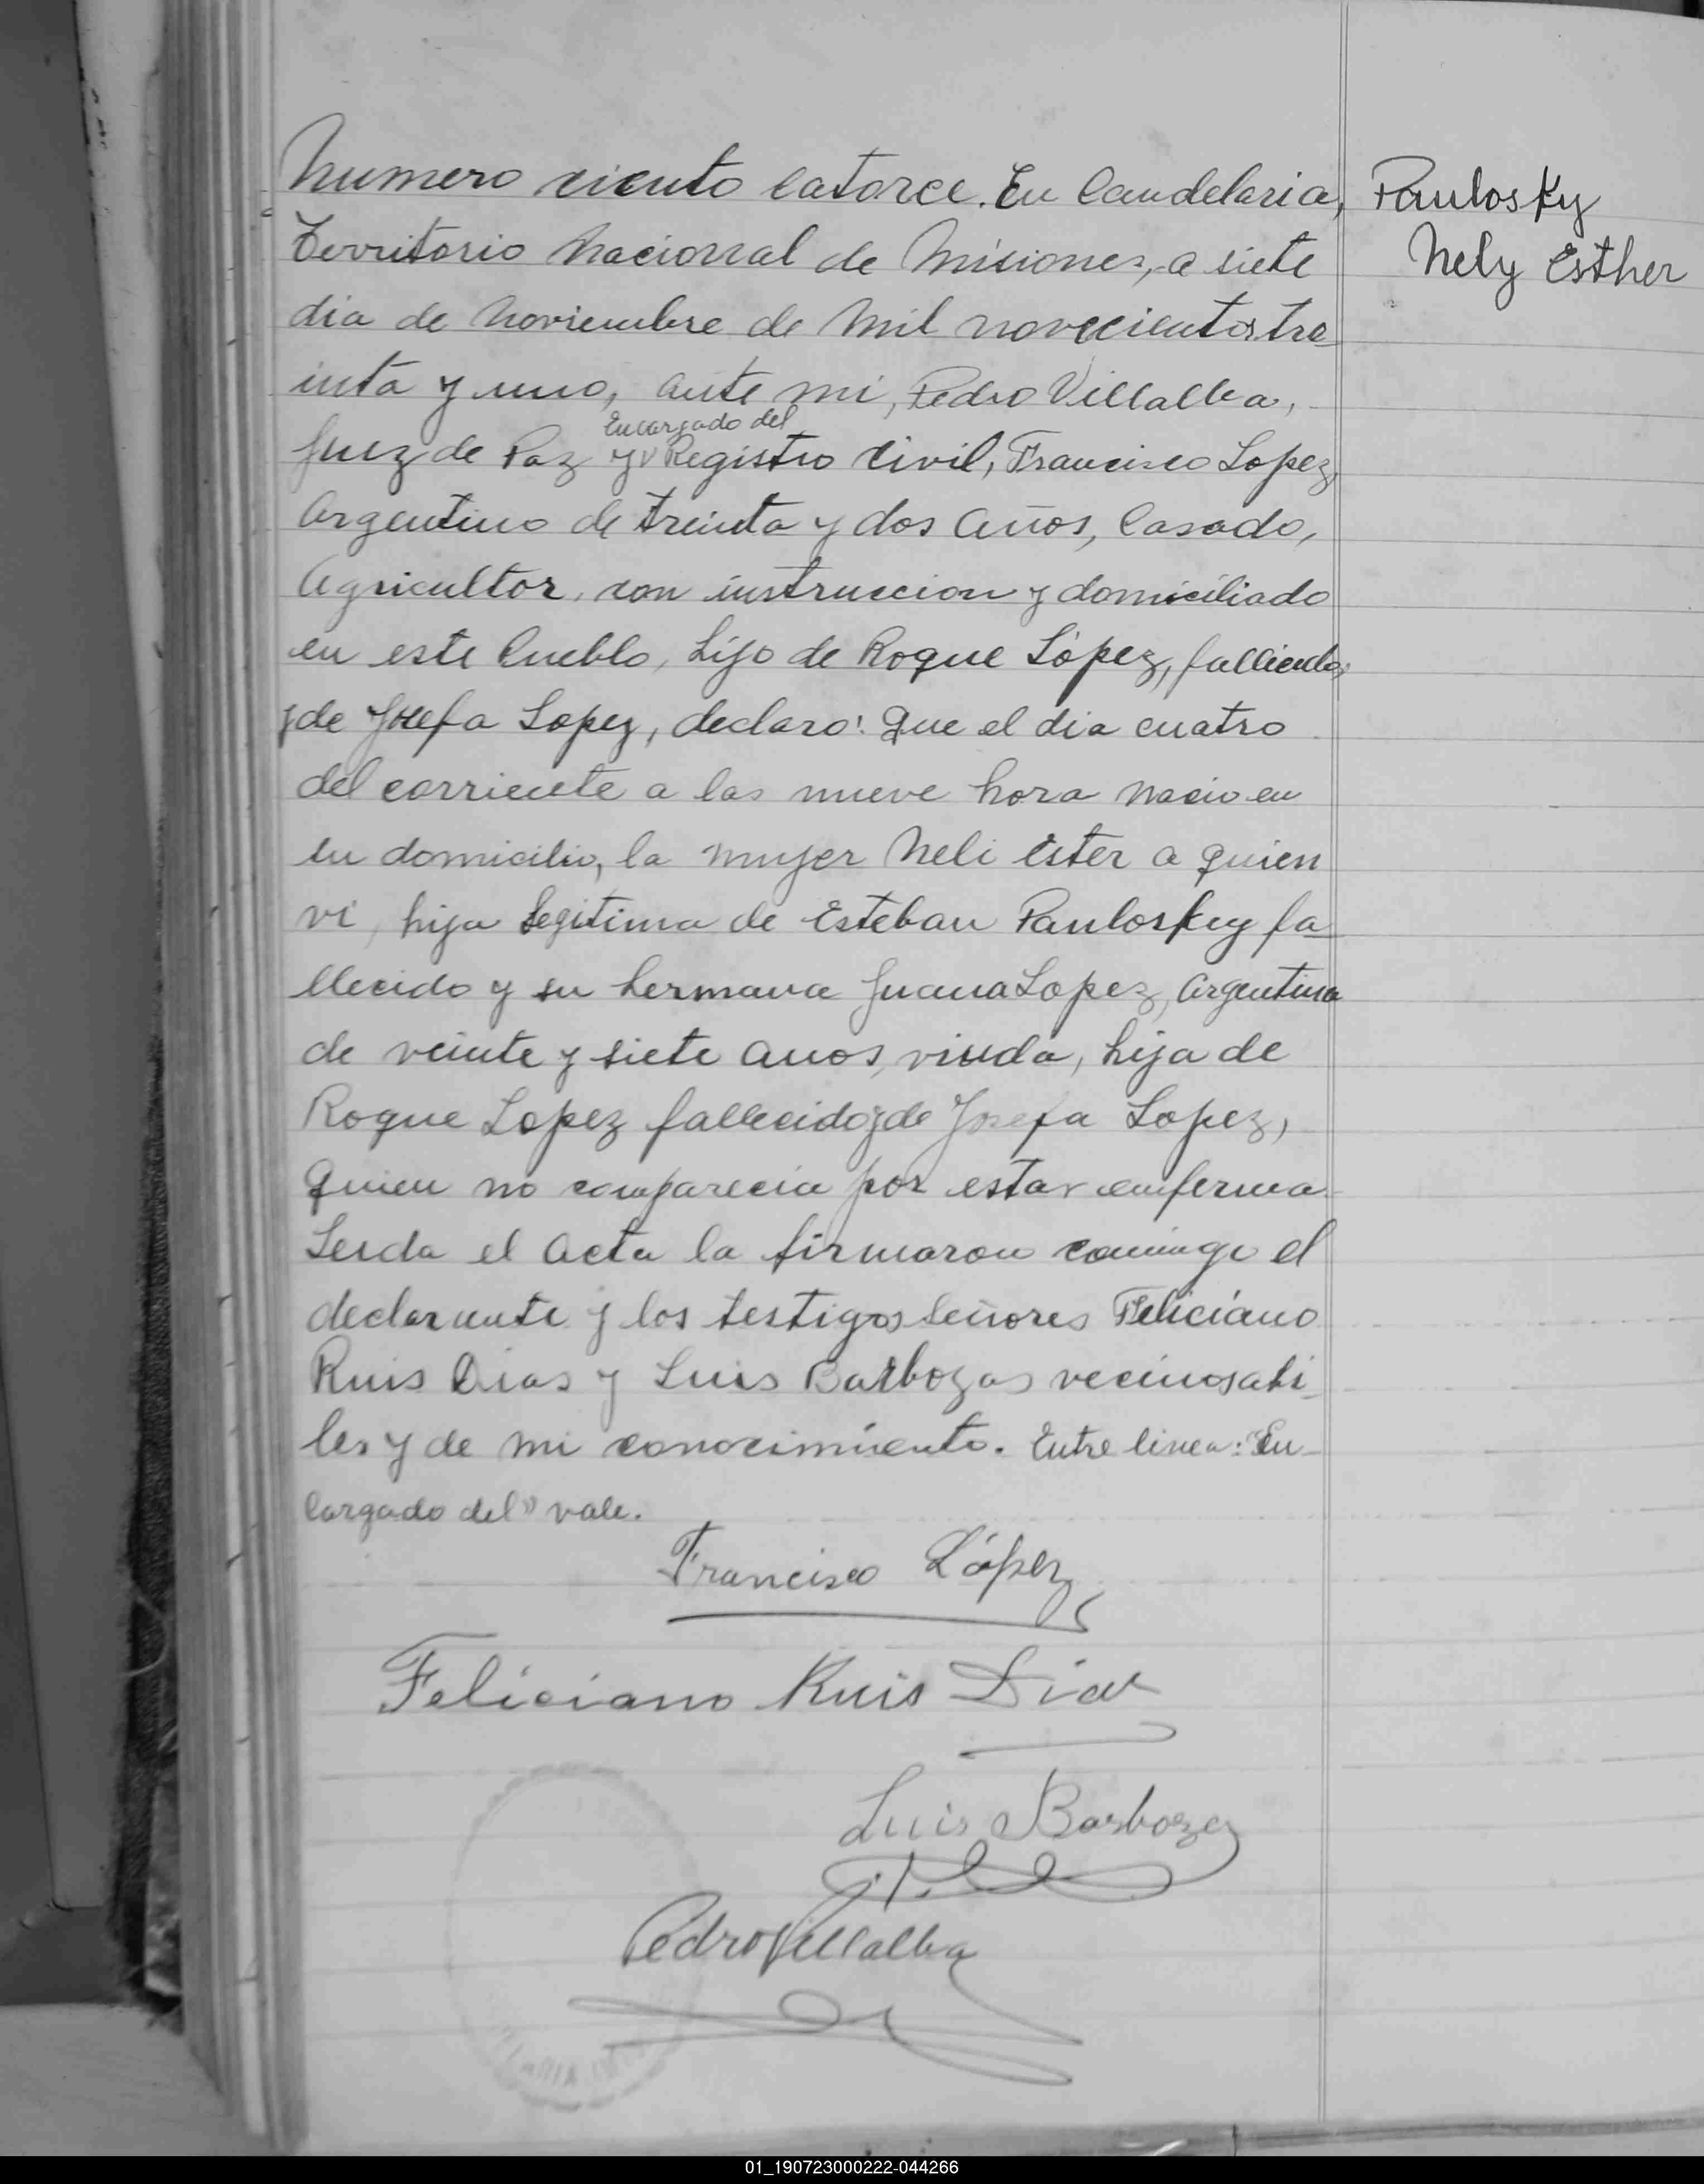 Numero ciento catorce. En Candelaria,
Paulosky
Nely Esther
Territorio Nacional de Misiones, a siete
dia de Noviembre de Mil novecientos tre
inta y uno, ante mi, Pedro Villalba,
Encargado del
Juez de Paz y Registro Civil, Francisco Lopez,
Argentino de treinta y dos años, Casado,
Agricultor, con instruccion y domiciliado
en este Pueblo, hijo de Roque López, fallicido,
y de Josefa Lopez, declaro: Que el dia cuatro
del corriente a las nueve hora nacio en
su domicilio, la mujer Neli Ester a quien
vi, hija legitima de Esteban Paulosky fa
llecido y su hermana Juana Lopez, Argentina
de veinte y siete anos, viuda, hija de
Roque Lopez fallecido y de Josefa Lopez,
Quien no comparecia por estar emferma
Leida el acta la firmaron comingo el
declarante y los testigos Señores Feliciano
Ruis Dias y Luis Barbozas vecinos abi
les y de mi conocimiento. Entre linea: En
cargado del" vale.
Francisco López
Feliciano Ruis Diaz
Luis Barboza
Pedro Villalba
01_190723000222-044266